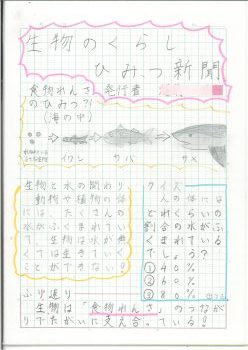 生物のくらし
ひみつ新聞
食物れんさ 発行者
のひみつ?!
(海の中)
イワシ
サバ
サメ
生物と水の関わり
動物や植物の体
には、たくさんの
水がふくまれてい
て、生物は水が無
くては生きていく
ことができない!
クイズ
人の体には
どれくらいの
割合の水がふ
くまれている
でしょう?
①40%
②60%
③80%
ふり返り
生物は「食物れんさ」のつなが
りでたがいに支え合っている!